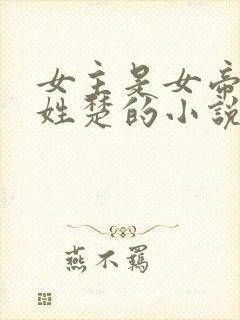 女主是女帝
姓楚的小說
燕不羈